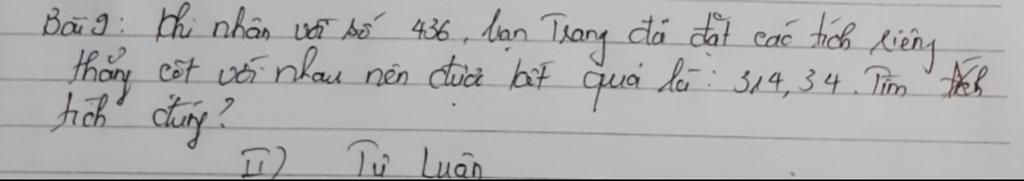 Bài 9: Khi nhân với số 436, bạn Trang đã đặt các tích riêng
thẳng cột với nhau nên được kết quả là: 314,34. Tìm tích
tích đúng?
II) Tự Luận